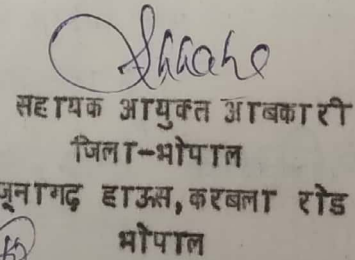 सहायक आयुक्त आबकारी
जिला-भोपाल
जूनागढ़ हाऊस, करबला रोड
भोपाल